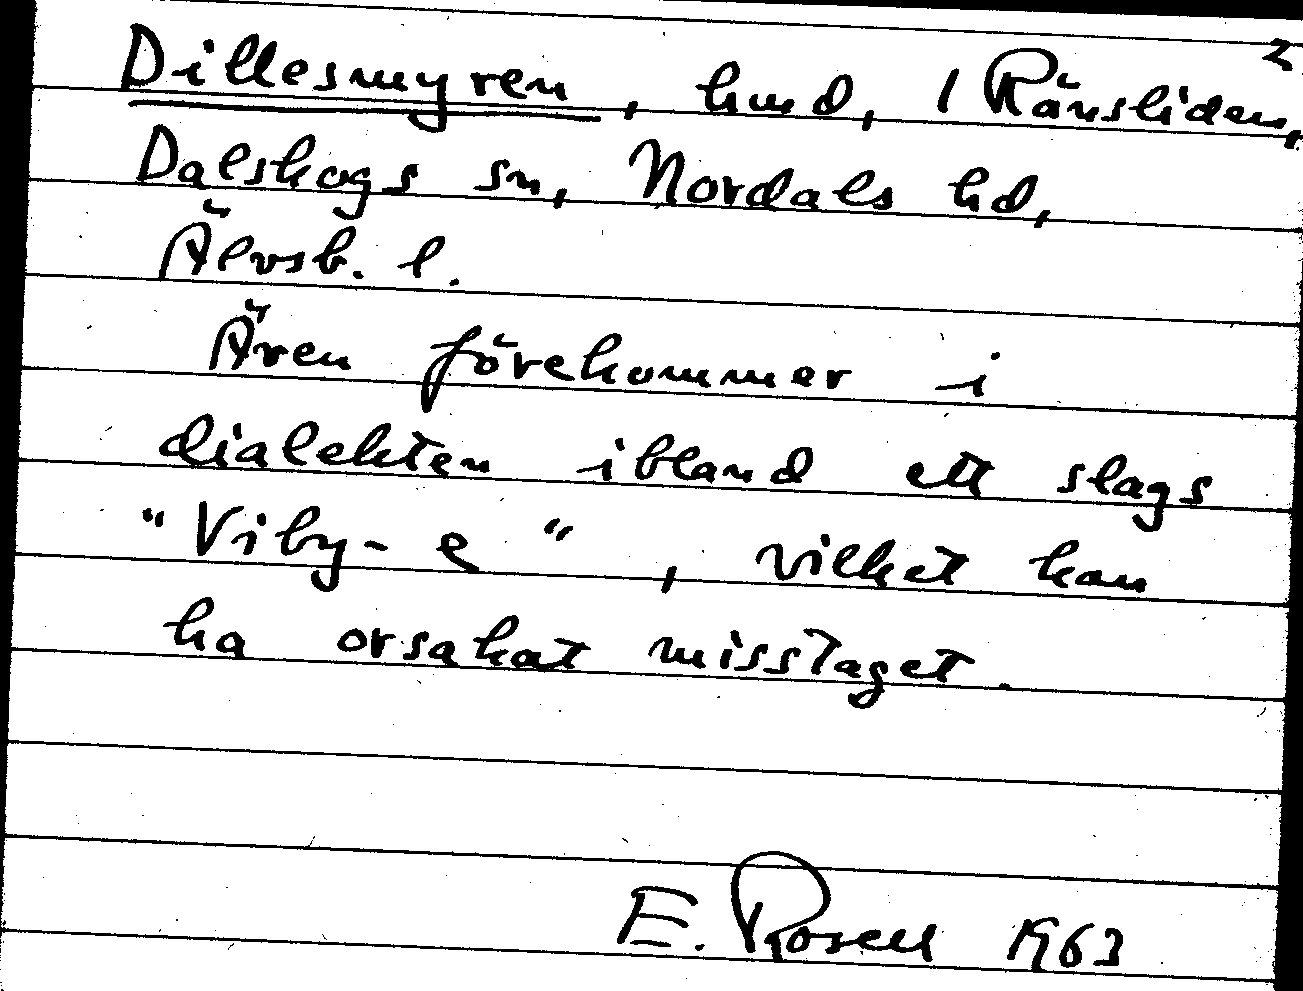 2
Dillesmyren, hmd, 1 Ränsliden,
Dalskogs sn, Nordals hd,
Älvsb. l.
Även förekommer i
dialekten ibland ett slags
"Viby-e", vilket kan
ha orsakat misstaget.
E. Rosell 1963